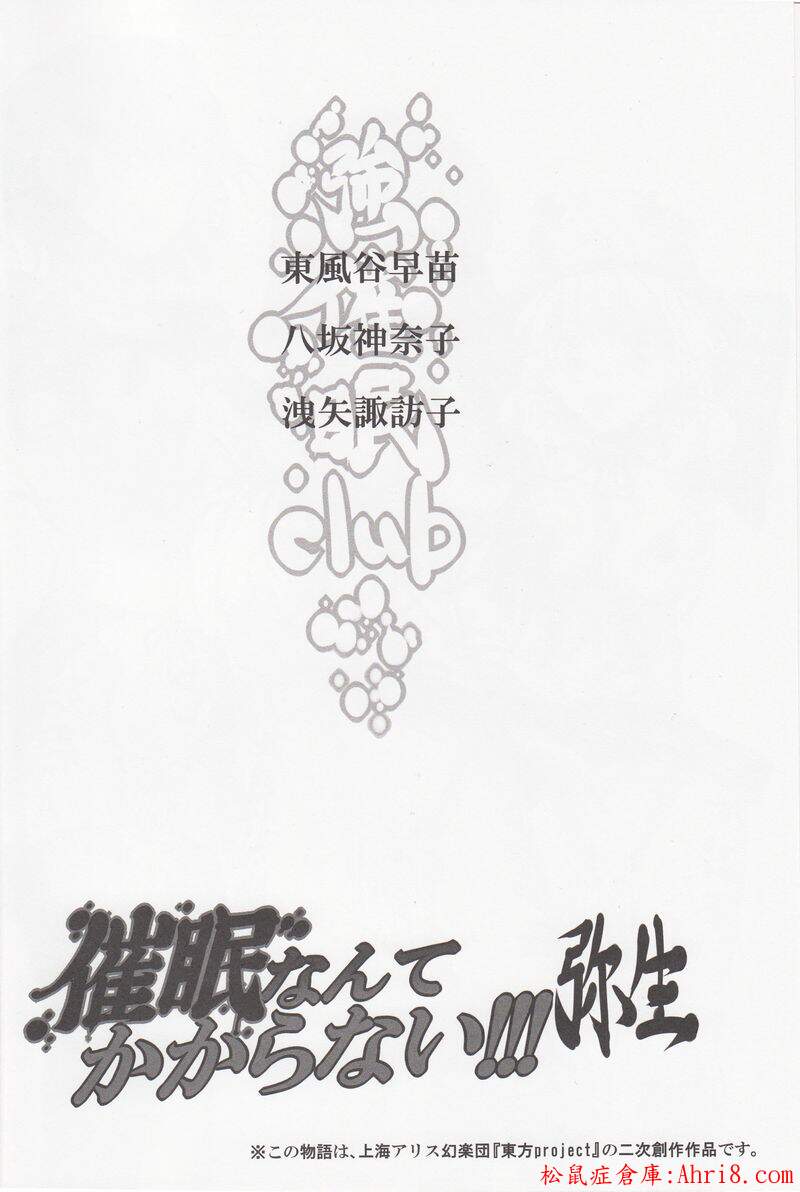 強
催
眠
club
東風谷早苗
八坂神奈子
洩矢諏訪子
催眠なんて
かからない!!!
弥生
※この物語は、上海アリス幻楽団『東方project』の二次創作作品です。
松鼠症倉庫:Ahri8.com